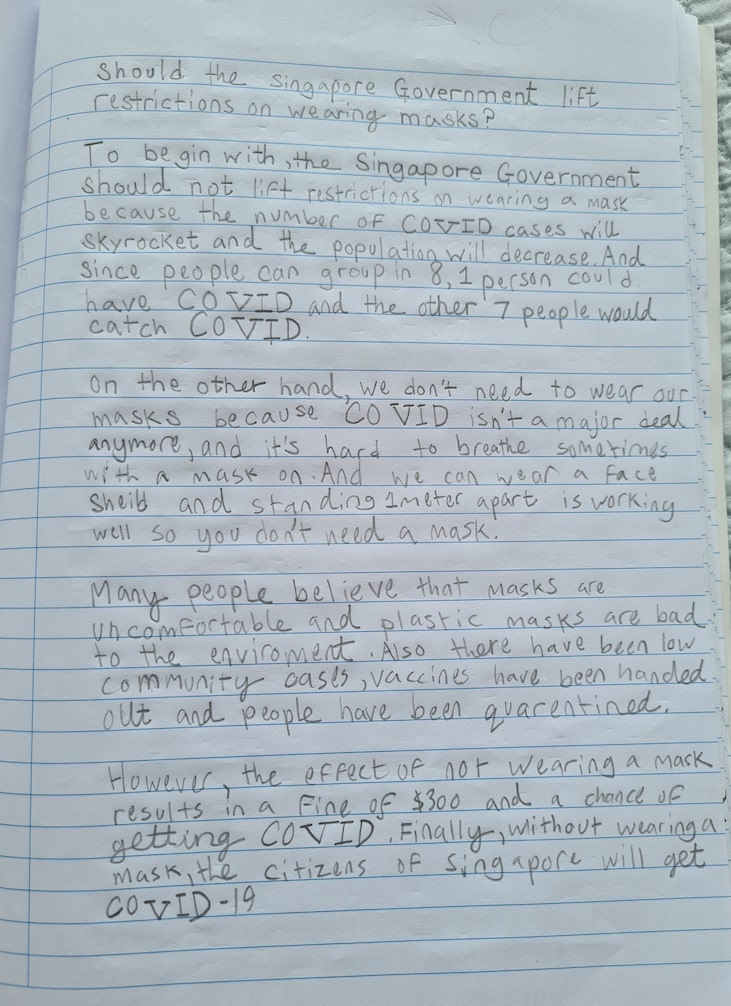 Should the Singapore Government lift
restrictions on wearing masks?
To begin with, the Singapore Government
should not lift restrictions on wearing a mask
because the number of COVID cases will
skyrocket and the population will decrease. And
since people can group in 8, 1 person could
have COVID and the other 7 people would
catch COVID.
On the other hand, we don't need to wear our
masks because COVID isn't a major deal
anymore, and it's hard to breathe sometimes
with a mask on. And we can wear a face
sheild and standing 1meter apart is working
well so you don't need a mask.
Many people believe that masks are
uncomfortable and plastic masks are bad
to the enviroment. Also there have been low
community cases, vaccines have been handed
out and people have been quarentined.
However, the effect of not wearing a mask
results in a fine of $300 and a chance of
getting COVID. Finally, without wearing a
mask, the citizens of Singapore will get
COVID-19